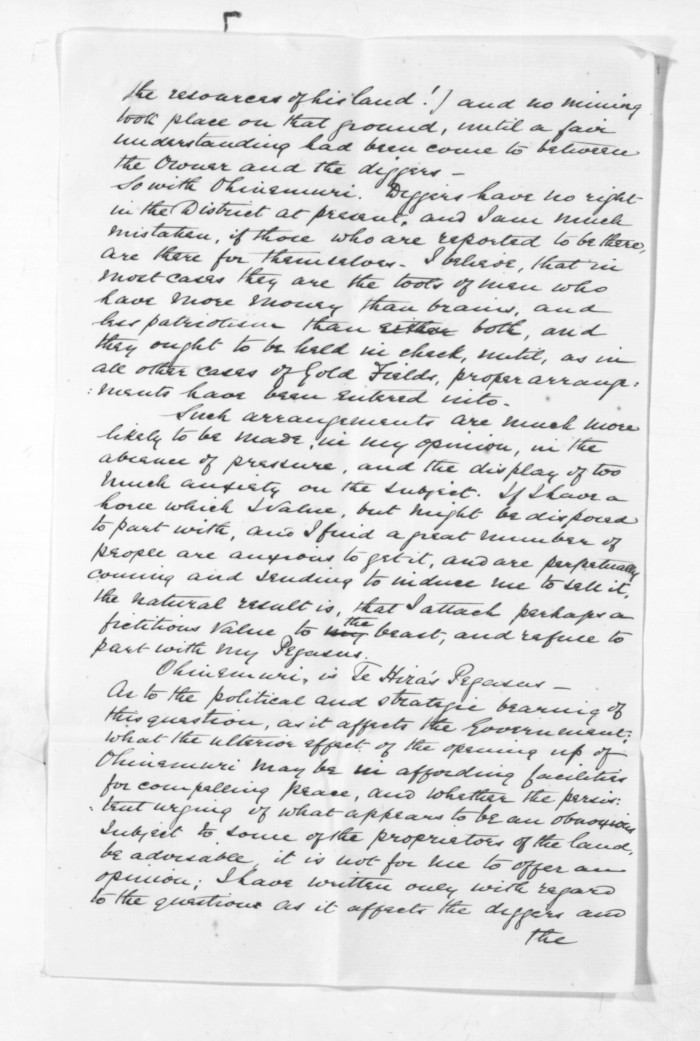 the resources of his land!) and no mining
took place on that ground, until a fair
understanding had been come to between
the Owner and the diggers –
So with Ohinemuri. Diggers have no right
in the District at present, and I am much
mistaken, if those who are reported to be there,
are there for themselves. I believe, that in
most cases they are the tools of men who
have more money than brains, and
less patriotism than either both, and
they ought to be held in check, until, as in
all other cases of Gold Fields, proper arrange:
:ments have been entered into.
Such arrangements are much more
likely to be made, in my opinion, in the
absence of pressure, and the display of too
much anxiety on the subject. If I have a
horse which I value, but might be disposed
to part with, and I find a great number of
people are anxious to get it, and are perpetually
coming and sending to induce me to sell it,
the natural result is, that I attach perhaps a
fictitious value to my the beast, and refuse to
part with my Pegasus.
Ohinemuri, is Te Hira's Pegasus –
As to the political and strategic bearing of
this question, as it affects the Government;
what the ulterior effect of the opening up of
Ohinemuri may be in affording facilities
for compelling peace, and whether the persis:
:tent urging of what appears to be an obnoxious
subject to some of the proprietors of the land,
be advisable, it is not for me to offer an
opinion; I have written only with regard
to the question as it affects the diggers and
the